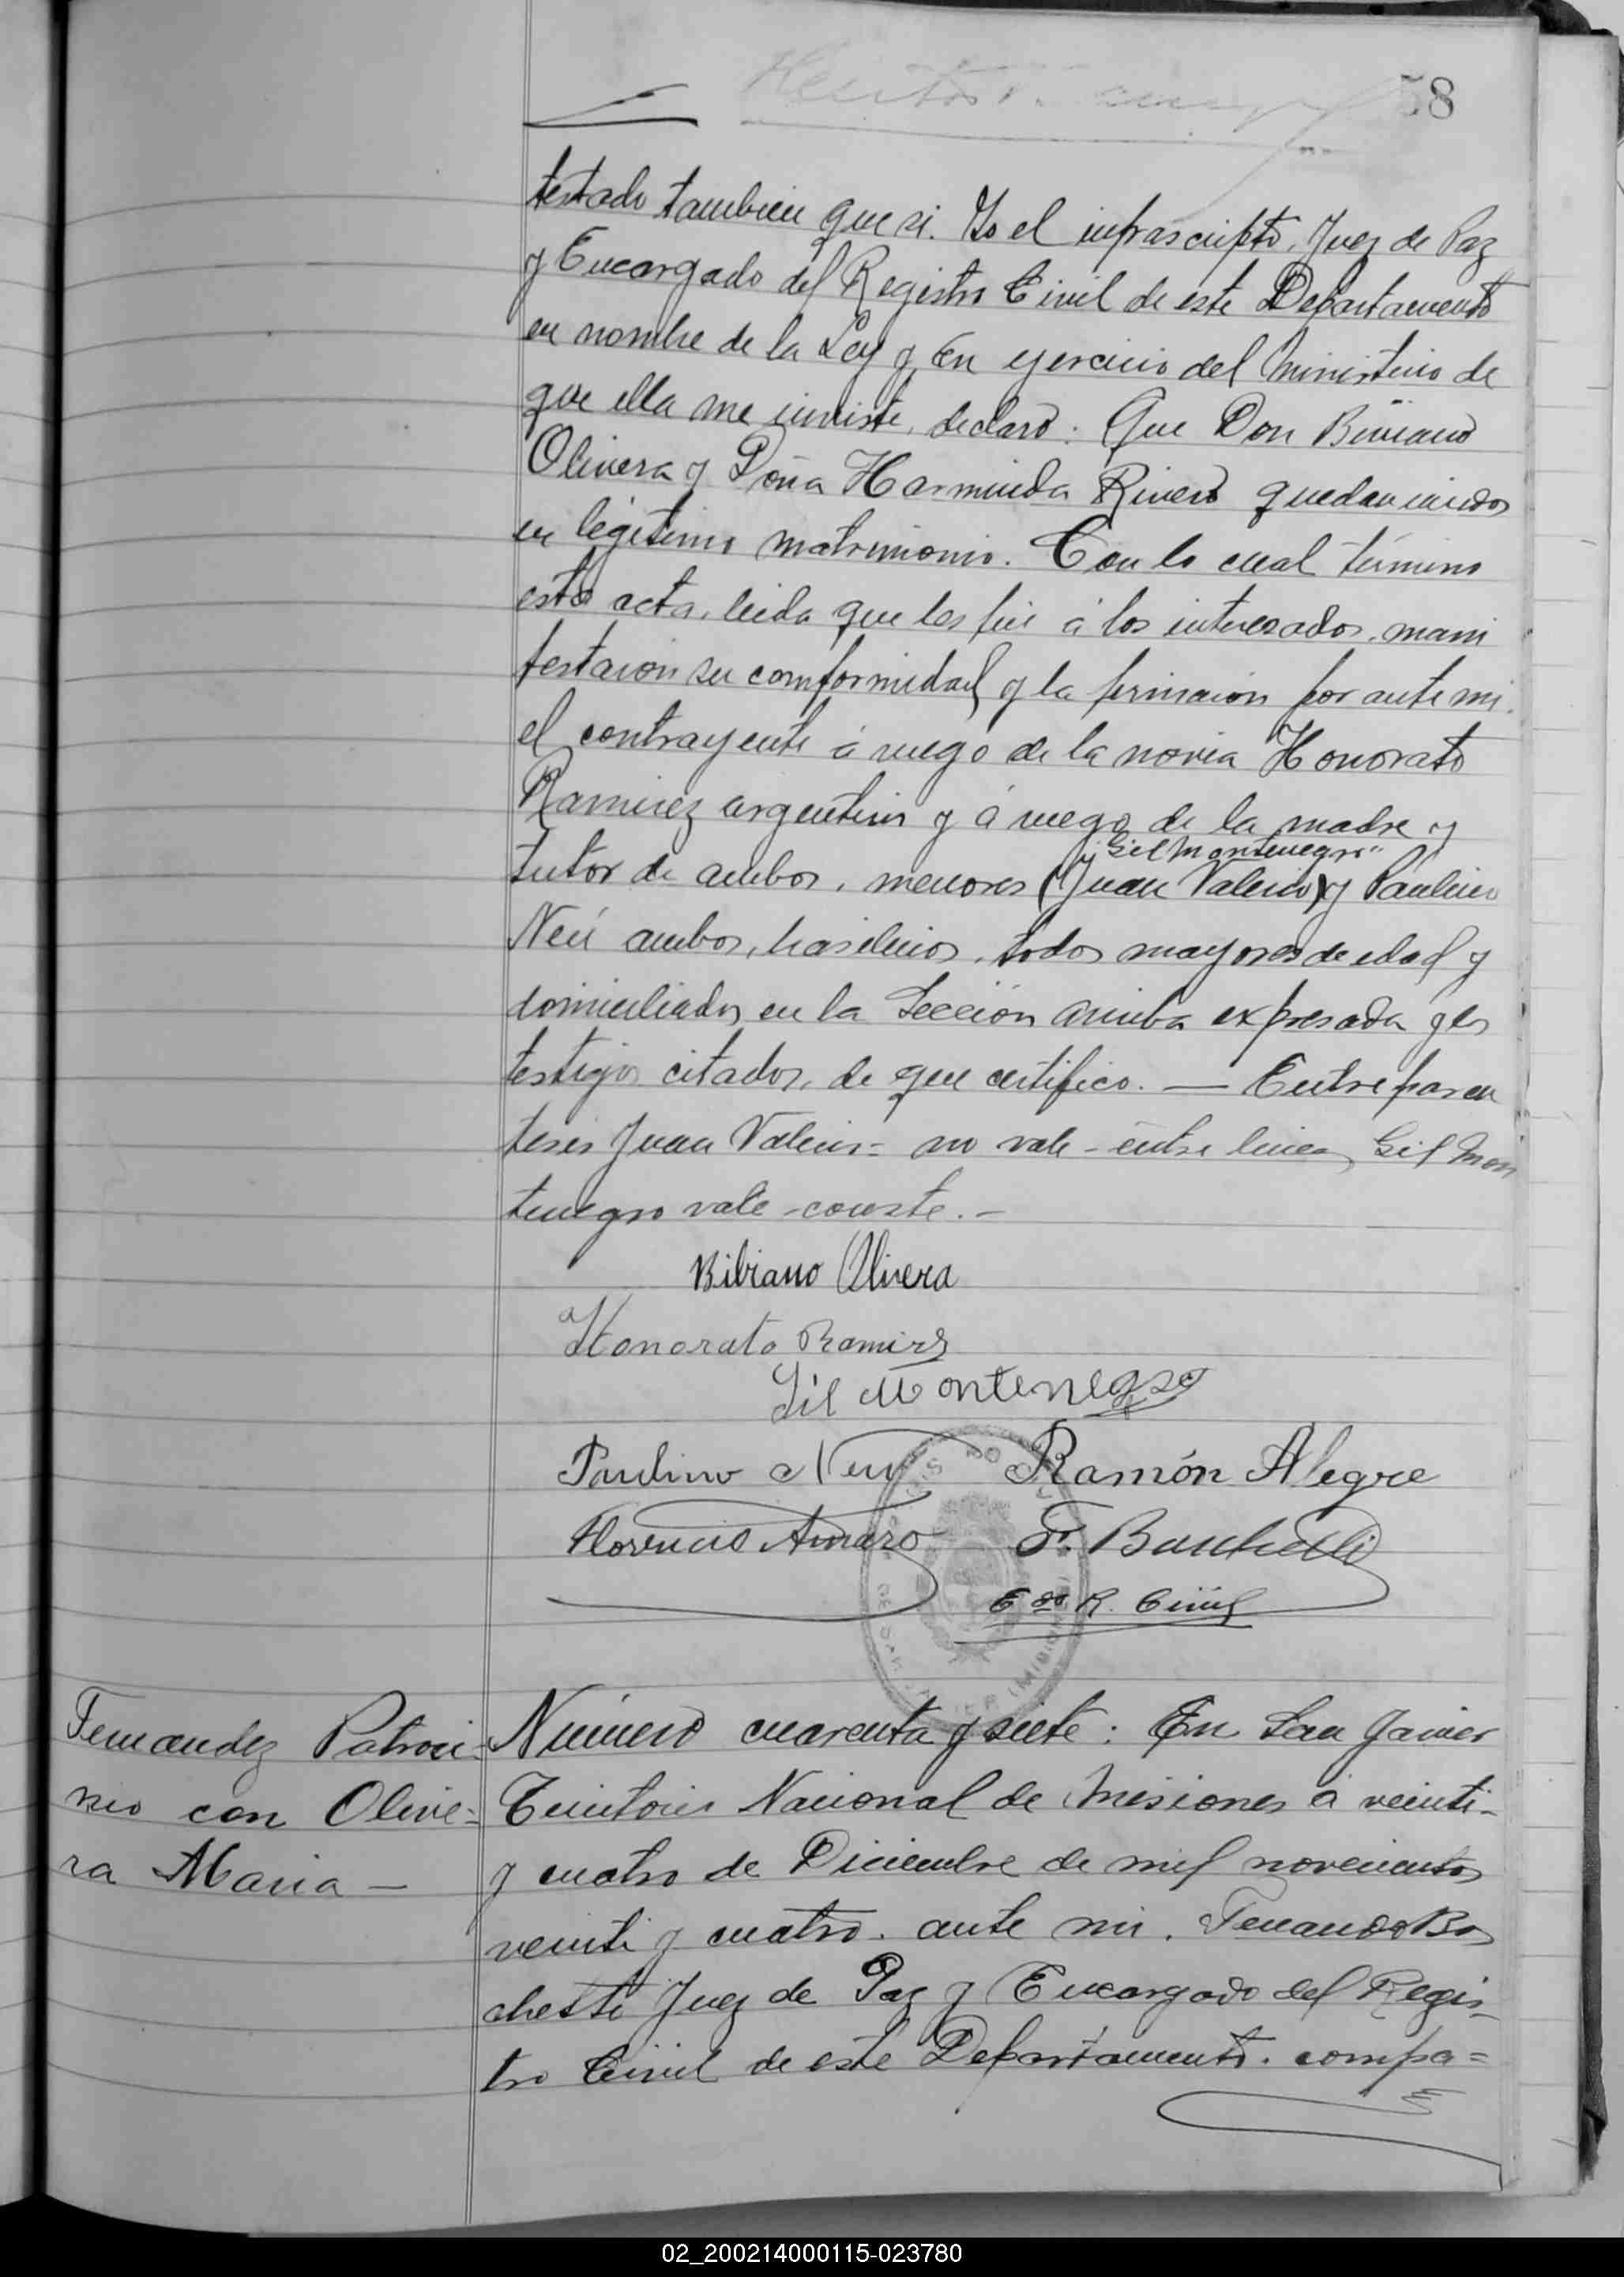 58
testado tambien que si. Yo el infrascripto, Juez de Paz
y Encargado del Registro Civil de este Departamento
en nombre de la Ley y en ejercicio del ministerio de
que ella me inviste, declaro: Que Don Biviano
Olivera y Doña Harminda Rivero quedan unidos
en legitimo matrimonio. Con lo cual términó
esta acta, leida que les fue á los interesados, mani
festaron su comformidad y la firmaron por ante mi.
el contrayente á ruego de la novia Honorato
Ramirez argentino y á ruego de la madre y
"Gil Montenegro"
tutor de ambos, menores (Juan Valerio) y Paulino
Neú ambos, brasileños, todos mayores de edad y
domiciliados en la Sección arriba expresada y los
testigos citados, de que certifico. — Entre paren
tesis Juan Valerio = no vale - entre lineas, Gil Mon
tenegro vale - conste. -
Bibiano Olivera
Honorato Ramirez
Gil Montenegro
Paulino Neu Ramón Alegre
Florencio Amaro F.
Edo R. Civil
Fernandez Patroci-
nio con Olive=
ra Maria —
Número cuarenta y siete: En San Javier
Territorio Nacional de Misiones á veinti-
y cuatro de Diciembre de mil novecientos
veinti y cuatro. ante mi. Fernando Bo
chetti Juez de Paz y Encargado del Regis-
tro Civil de este Departamento. compa=
02_200214000115-023780